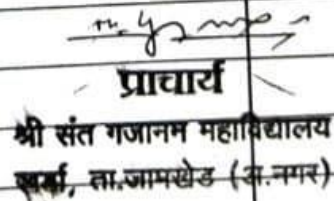 प्राचार्य
श्री संत गजानन महाविद्यालय
खर्डा, ता.जामखेड (अ.नगर)